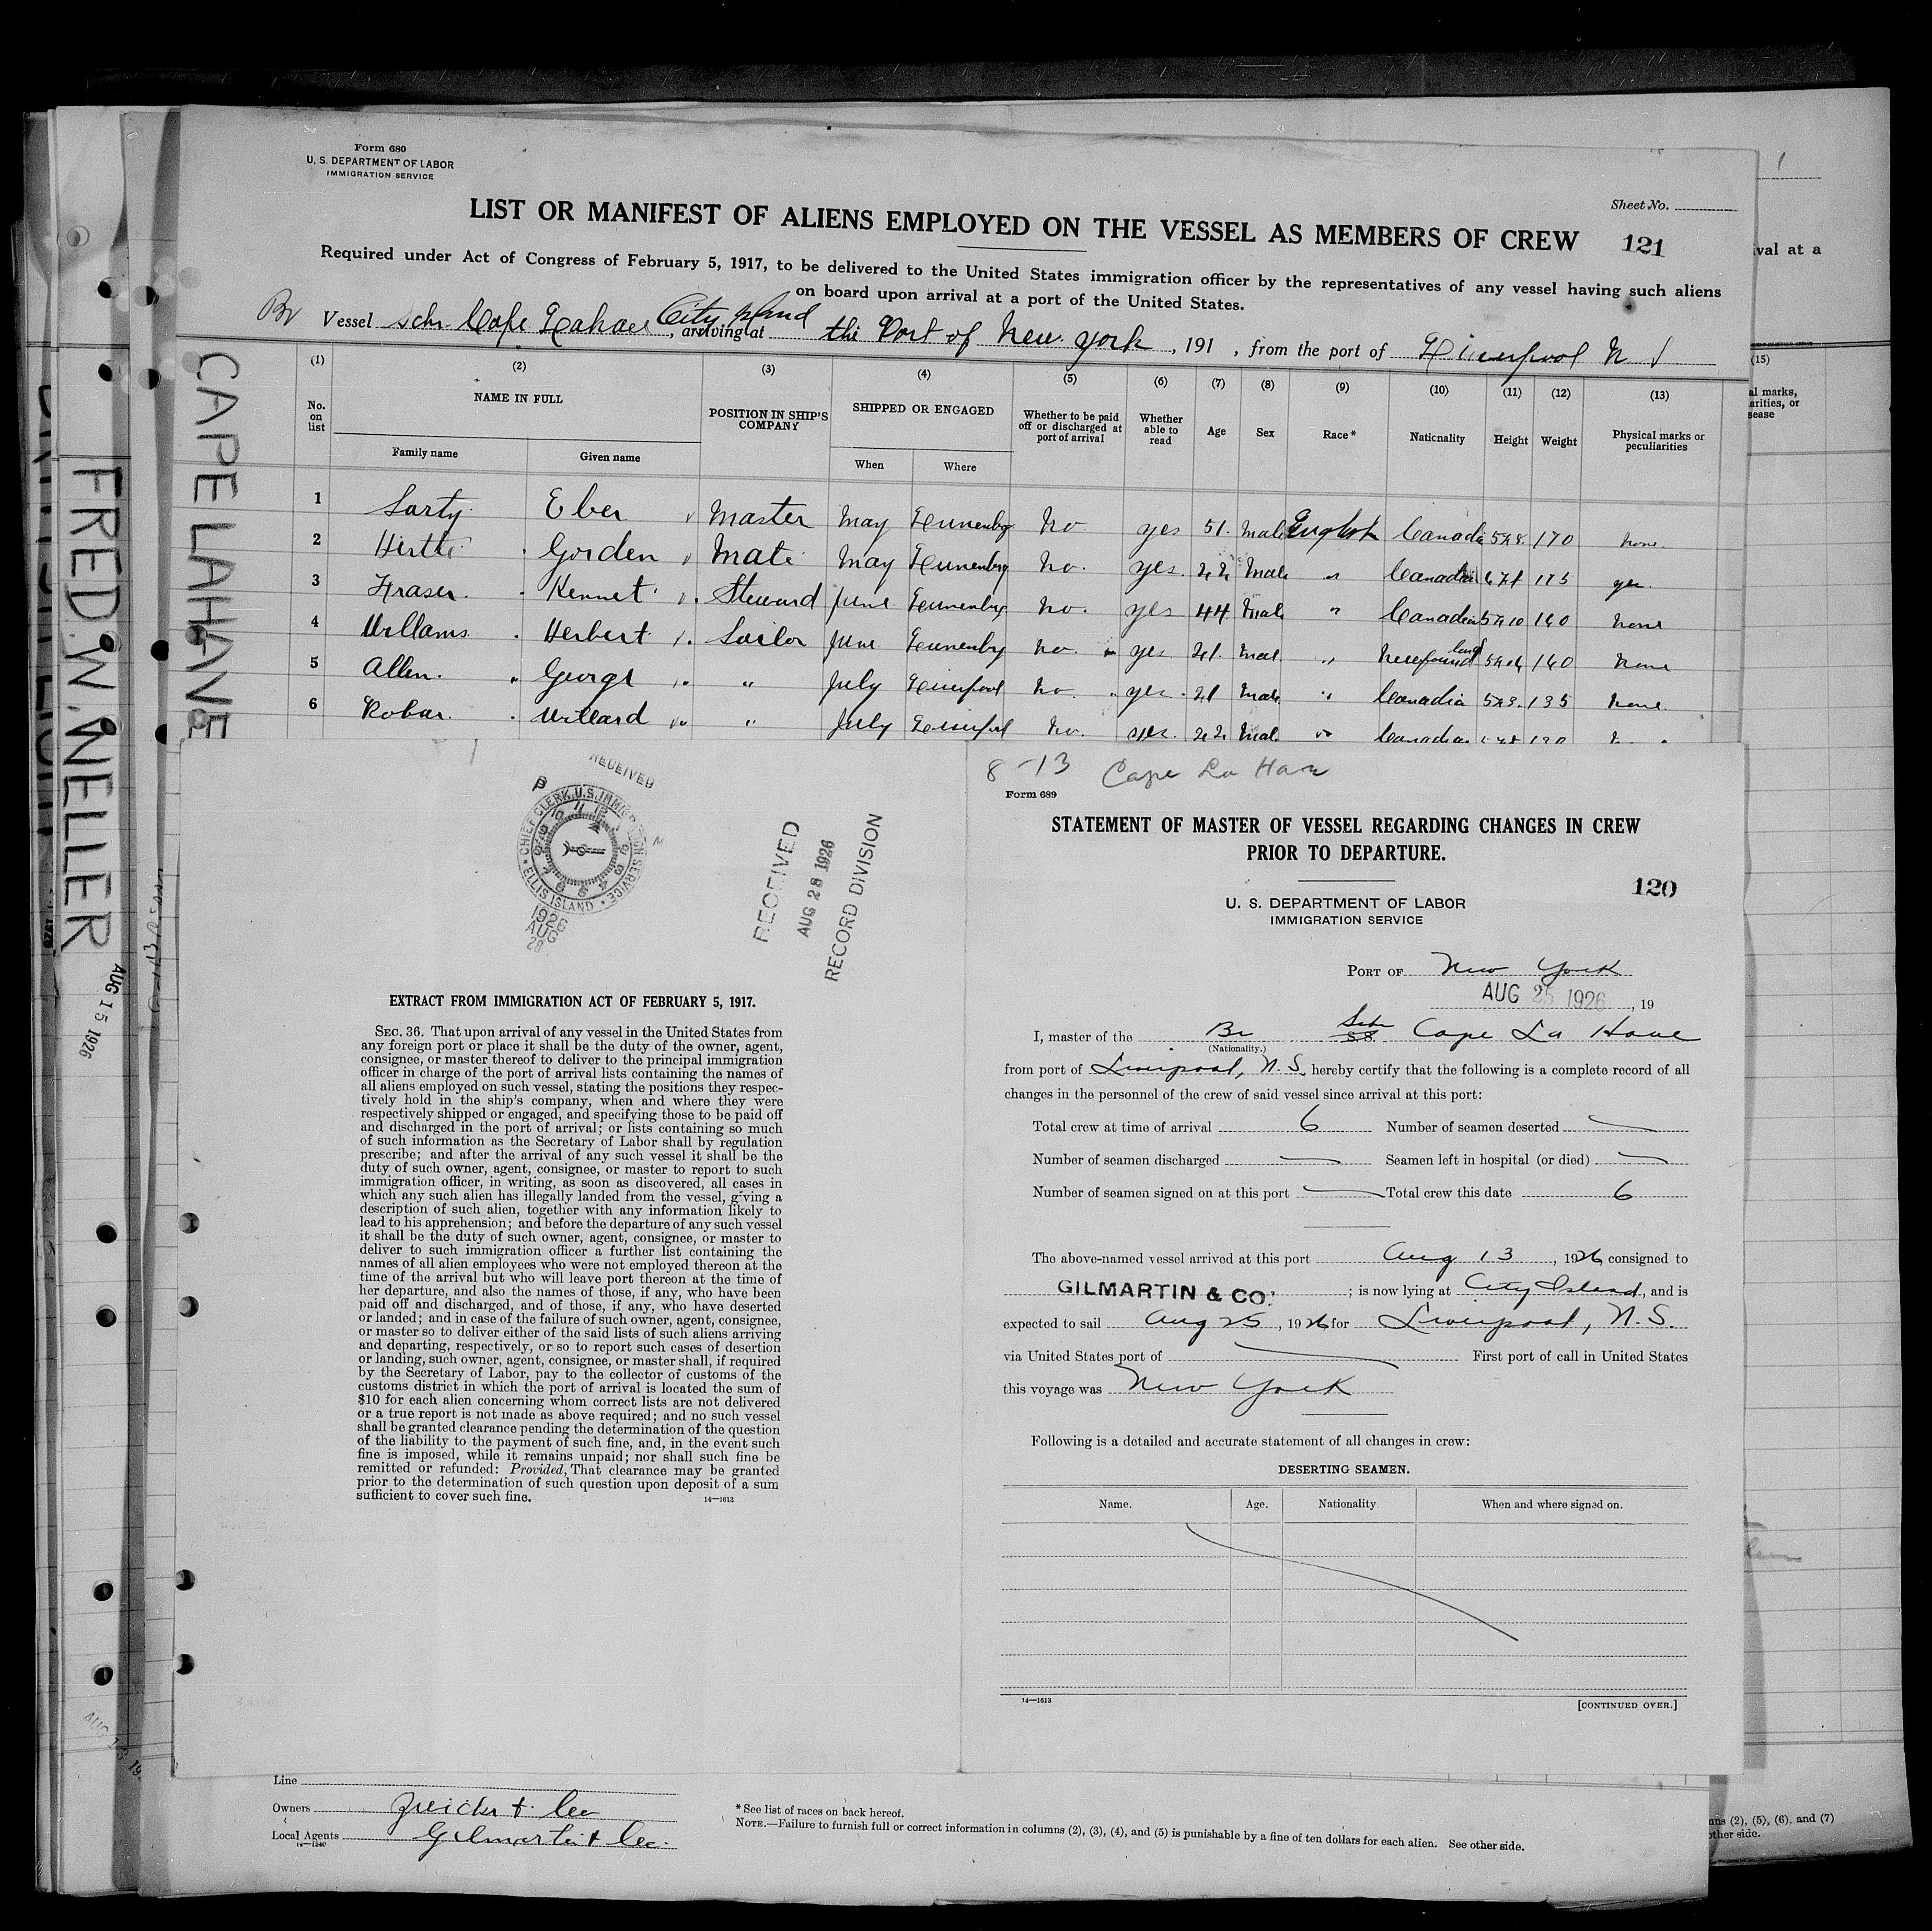 Form 680
U. S. DEPARTMENT OF LABOR
IMMIGRATION SERVICE
Sheet No.
LIST OR MANIFEST OF ALIENS EMPLOYED ON THE VESSEL AS MEMBERS OF CREW
121
Required under Act of Congress of February 5, 1917, to be delivered to the United States immigration officer by the representatives of any vessel having such aliens
on board upon arrival at a port of the United States.
Br Vessel schr. Cape Lahave, arriving at City Island the Port of New York, 191 , from the port of Liverpool N S
(1) (2) (3) (4) (5) (6) (7) (8) (9) (10) (11) (12) (13)
No. on list NAME IN FULL POSITION IN SHIP'S COMPANY SHIPPED OR ENGAGED Whether to be paid off or discharged at port of arrival Whether able to read Age Sex Race* Nationality Height Weight Physical marks or peculiarities
Family name Given name When Where
1 Sarty Eber Master May Lunenburg No yes 51 Male English Canadia 5 ft 8 170 None
2 Hirtle Gorden Mate May Lunenburg No. yes. 22 Male " Canadian 175 yes
3 Fraser Kennet Steward June Lunenburg No. yes 44 Male " Canadian 5 ft 10 160 None
4 Willams Herbert Sailor June Lunenburg No. yes 21. Mal " Newfoundland 160 None
5 Allen. George " July Liverpool No. yes. 21 Male " Canadia 5 ft 9. 135 None
6 Robar. Willard " July Liverpool No. yes. 22 Mal. " Canadian
CAPE LAHAVE
FRED. W. WELLER
AUG 15 1926
ival at a
(15)
al marks,
arities, or
sease
RECEIVED
CHIEF CLERK, U.S. IMMIGRATION SERVICE
ELLIS ISLAND
1926
AUG
28
RECEIVED
AUG 28 1926
RECORD DIVISION
EXTRACT FROM IMMIGRATION ACT OF FEBRUARY 5, 1917.
SEC. 36. That upon arrival of any vessel in the United States from
any foreign port or place it shall be the duty of the owner, agent,
consignee, or master thereof to deliver to the principal immigration
officer in charge of the port of arrival lists containing the names of
all aliens employed on such vessel, stating the positions they respec-
tively hold in the ship's company, when and where they were
respectively shipped or engaged, and specifying those to be paid off
and discharged in the port of arrival; or lists containing so much
of such information as the Secretary of Labor shall by regulation
prescribe; and after the arrival of any such vessel it shall be the
duty of such owner, agent, consignee, or master to report to such
immigration officer, in writing, as soon as discovered, all cases in
which any such alien has illegally landed from the vessel, giving a
description of such alien, together with any information likely to
lead to his apprehension; and before the departure of any such vessel
it shall be the duty of such owner, agent, consignee, or master to
deliver to such immigration officer a further list containing the
names of all alien employees who were not employed thereon at the
time of the arrival but who will leave port thereon at the time of
her departure, and also the names of those, if any, who have been
paid off and discharged, and of those, if any, who have deserted
or landed; and in case of the failure of such owner, agent, consignee,
or master so to deliver either of the said lists of such aliens arriving
and departing, respectively, or so to report such cases of desertion
or landing, such owner, agent, consignee, or master shall, if required
by the Secretary of Labor, pay to the collector of customs of the
customs district in which the port of arrival is located the sum of
$10 for each alien concerning whom correct lists are not delivered
or a true report is not made as above required; and no such vessel
shall be granted clearance pending the determination of the question
of the liability to the payment of such fine, and, in the event such
fine is imposed, while it remains unpaid; nor shall such fine be
remitted or refunded: Provided, That clearance may be granted
prior to the determination of such question upon deposit of a sum
sufficient to cover such fine.
14—1613
8-13 Cape La Have
Form 689
STATEMENT OF MASTER OF VESSEL REGARDING CHANGES IN CREW
PRIOR TO DEPARTURE.
120
U. S. DEPARTMENT OF LABOR
IMMIGRATION SERVICE
PORT OF New York
AUG 25 1926, 19
I, master of the Br Schr SS Cape La Have
(Nationality.)
from port of Liverpool, N.S., hereby certify that the following is a complete record of all
changes in the personnel of the crew of said vessel since arrival at this port:
Total crew at time of arrival 6 Number of seamen deserted
Number of seamen discharged Seamen left in hospital (or died)
Number of seamen signed on at this port Total crew this date 6
The above-named vessel arrived at this port Aug 13, 1926, consigned to
GILMARTIN & CO.; is now lying at City Island, and is
expected to sail Aug 25, 1926 for Liverpool, N.S.
via United States port of First port of call in United States
this voyage was New York
Following is a detailed and accurate statement of all changes in crew:
DESERTING SEAMEN.
Name. Age. Nationality When and where signed on.
14—1613
[CONTINUED OVER.]
Line
Owners
Local Agents Gilmartin & Co.
* See list of races on back hereof.
NOTE.—Failure to furnish full or correct information in columns (2), (3), (4), and (5) is punishable by a fine of ten dollars for each alien. See other side.
mns (2), (5), (6), and (7)
other side.